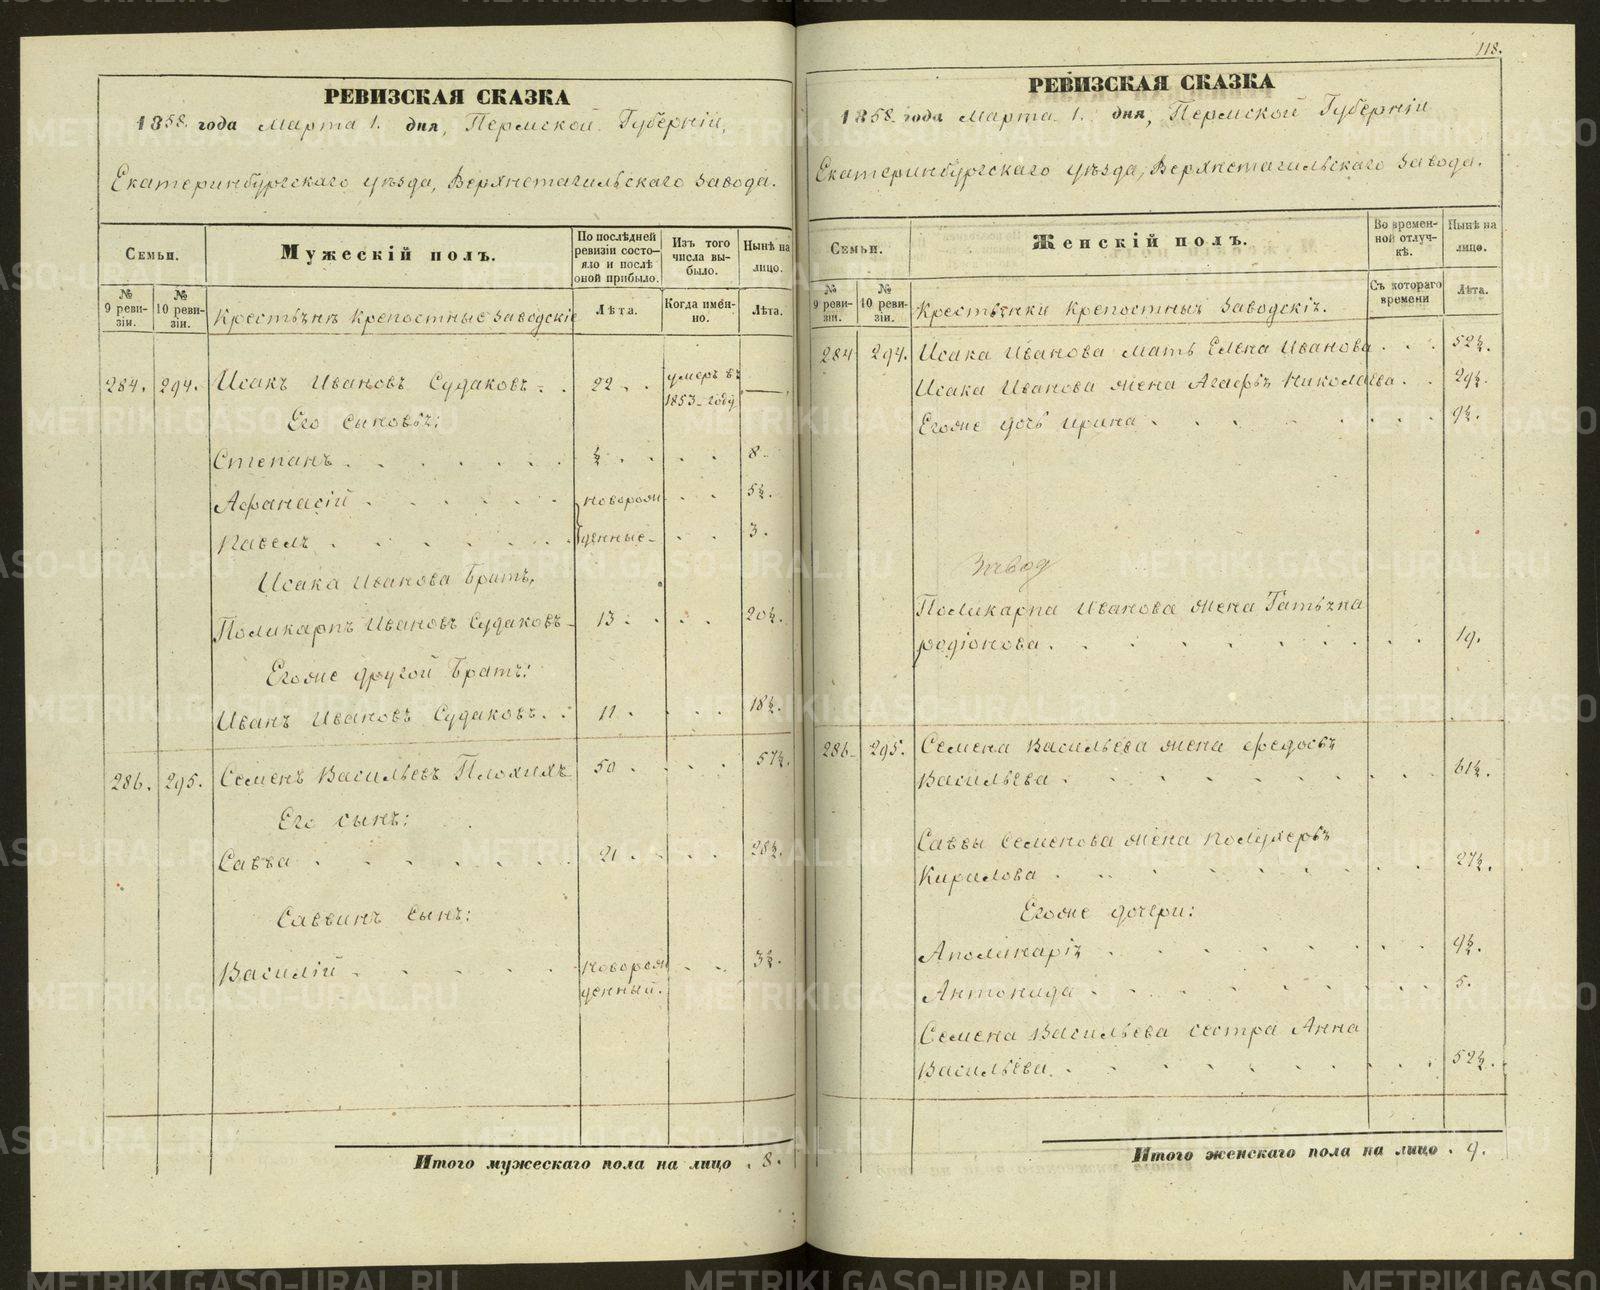 РЕВИЗСКАЯ СКАЗКА
1858. года Марта 1. дня, Пермской Губерніи,
Екатеринбургскаго уѣзда, Верхнетагильскаго завода.
Семьи.
Мужескій полъ.
По послѣдней ревизіи состояло и послѣ оной прибыло.
Изъ того числа выбыло.
Нынѣ на лицо.
№ 9 ревизіи.
№ 10 ревизіи.
Крестьяне крепостные заводскіе
Лѣта.
Когда именно.
Лѣта.
284. 294. Исакъ Ивановъ Судаковъ . . 22 . . умеръ въ 1853 году —
Его сыновья:
Степанъ . . . . . . . ½ . . . . 8
Афанасій . . . . . новорож . . 5½.
Павелъ . . . . . . . денные . . 3.
Исака Иванова братъ,
Поликарпъ Ивановъ Судаковъ 13 . . . . 20½.
Егоже другой братъ:
Иванъ Ивановъ Судаковъ . . 11 . . . . 18½.
286. 295. Семенъ Васильевъ Плохихъ 50 . . . . 57½.
Его сынъ:
Савва . . . . . . . 21 . . . . 28½.
Саввинъ сынъ:
Василій . . . . . новорож . . 3½.
денный.
Итого мужескаго пола на лицо . 8.
118.
РЕВИЗСКАЯ СКАЗКА
1858. года Марта 1. дня, Пермской Губерніи
Екатеринбургскаго уѣзда, Верхнетагильскаго завода.
Семьи.
Женскій полъ.
Во временной отлучкѣ.
Нынѣ на лицо.
№ 9 ревизіи.
№ 10 ревизіи.
Крестьянки крепостныя заводскія.
Съ котораго времени
Лѣта.
284 294. Исака Иванова мать Елена Иванова . . . 52½.
Исака Иванова жена Агафья Николаева . . 29½.
Егоже дочь Ирина . . . . . . . . 9½.
Завод
Поликарпа Иванова жена Татьяна
родіонова . . . . . . . . . . 19.
286 295. Семена Васильева жена Федосья
Васильева . . . . . . . . . . 61½.
Саввы Семенова жена Полухерья
Кирилова . . . . . . . . . 27½.
Егоже дочери:
Аполинарія . . . . . . . . . 9½.
Антонида . . . . . . . . . . 5.
Семена Васильева сестра Анна
Васильева . . . . . . . . . . 52½.
Итого женскаго пола на лицо . 9.
METRIKI.GASO-URAL.RU